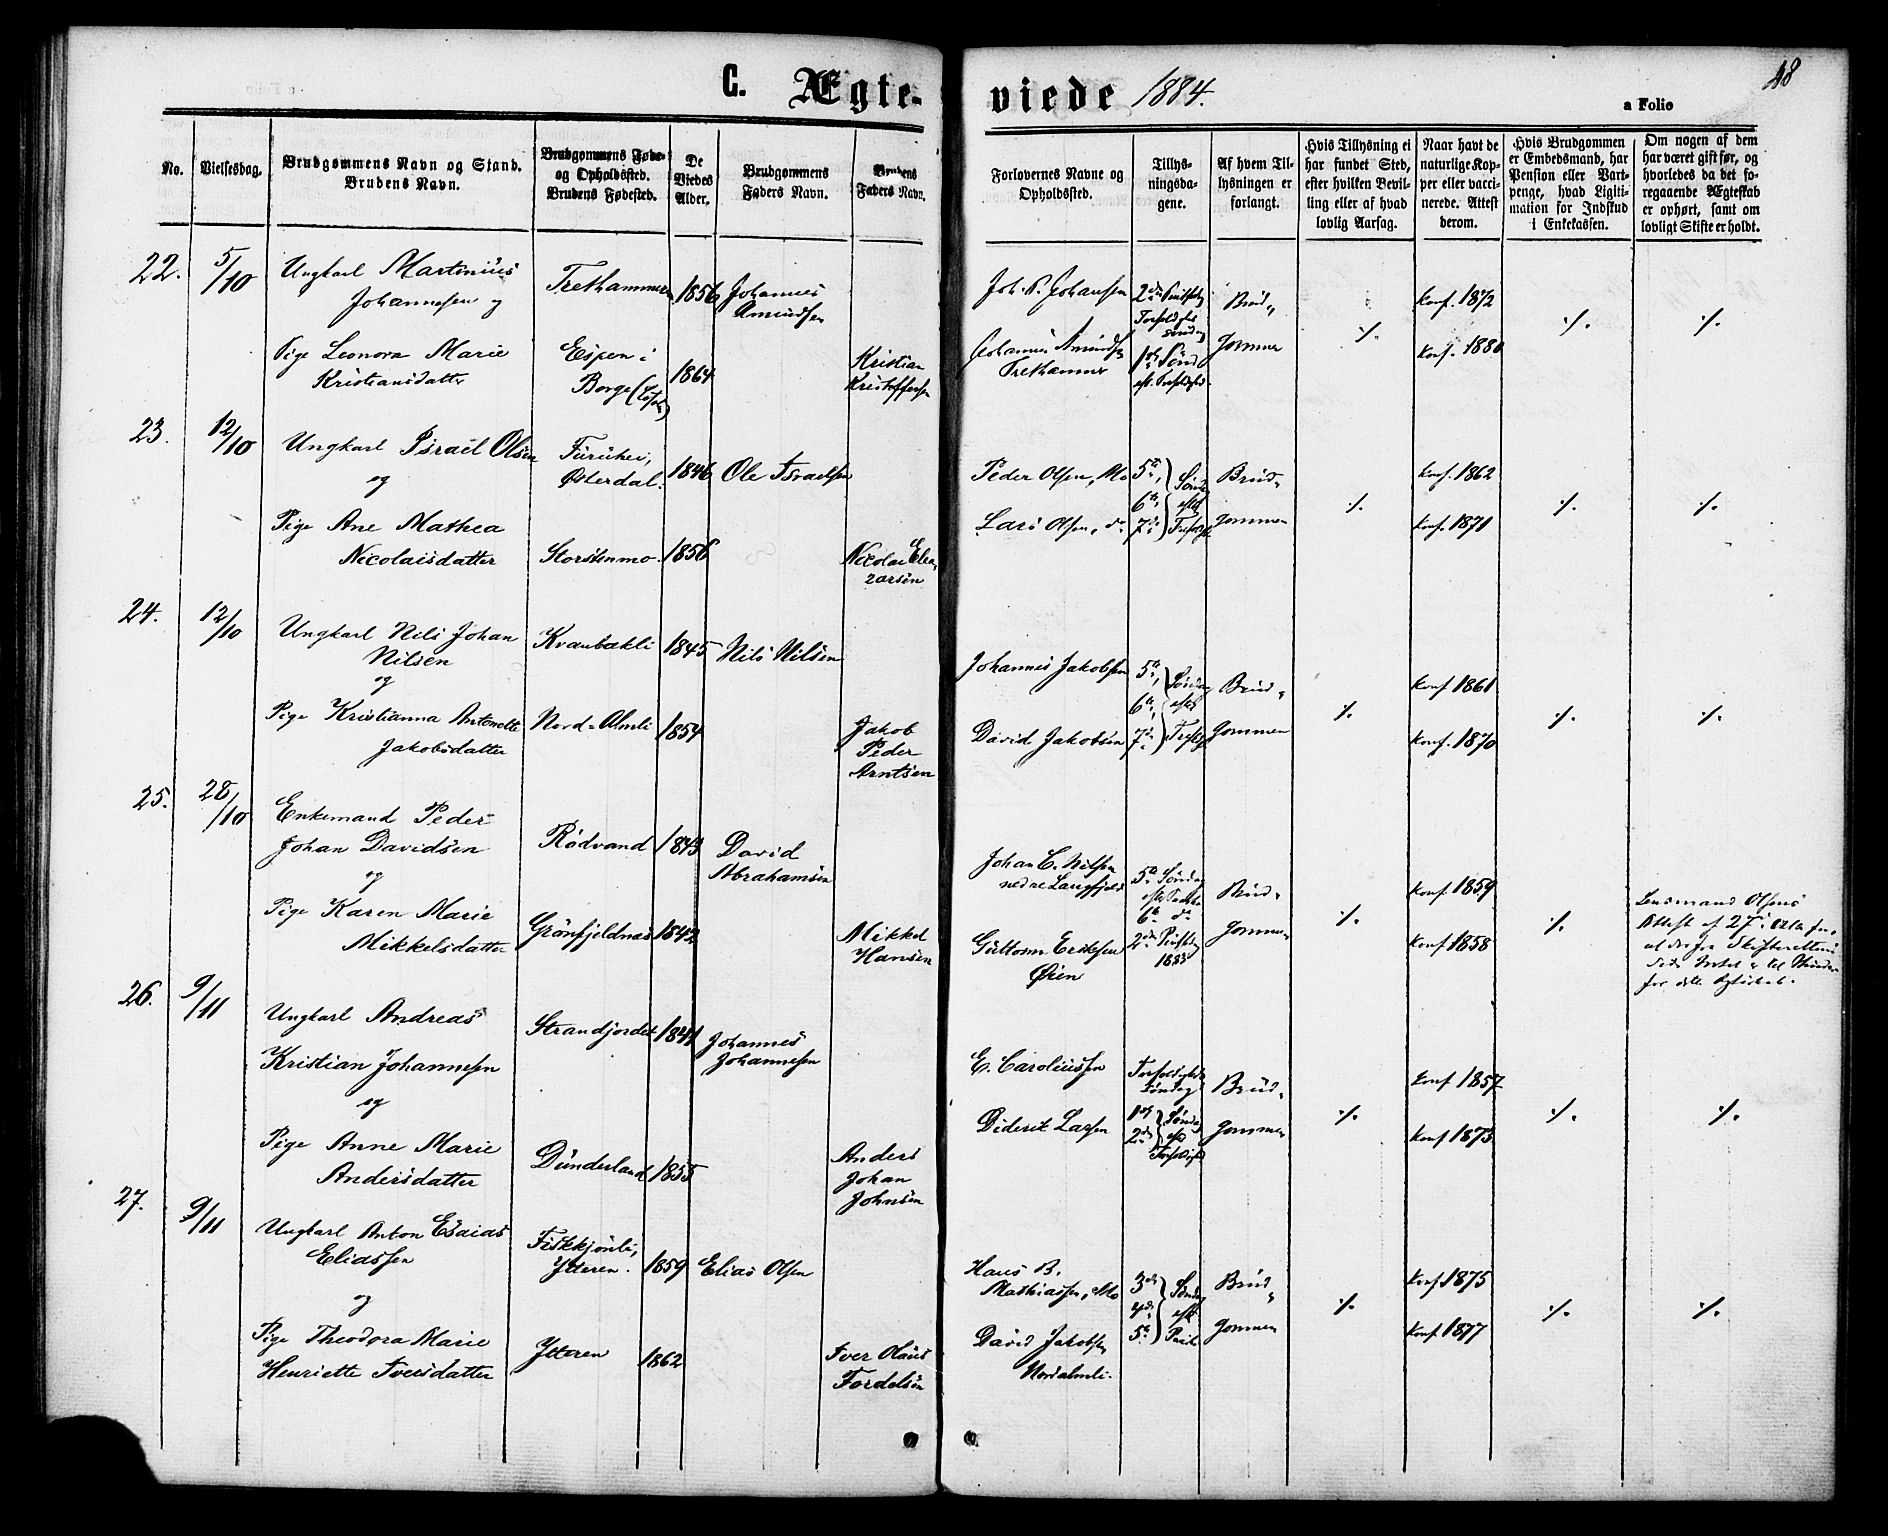 C. Ægte-
viede 1884.
a Folio
48
No.
Vielsesdag.
Brudgommens Navn og Stand.
Brudens Navn.
Brudgommens Føde-
og Opholdssted.
Brudens Fødested.
De
Viedes
Alder.
Brudgommens
Faders Navn.
Brudens
Faders Navn.
Forlovernes Navne og
Opholdssted.
Tillys-
ningsda-
gene.
Af hvem Til-
lysningen er
forlangt.
Hvis Tillysning ei
har fundet Sted,
efter hvilken Bevil-
ling eller af hvad
lovlig Aarsag.
Naar havt de
naturlige Kop-
per eller vacci-
nerede. Attest
derom.
Hvis Brudgommen
er Embedsmand, har
Pension eller Vart-
penge, hvad Ligiti-
mation for Indskud
i Enkekassen.
Om nogen af dem
har været gift før, og
hvorledes da det fo-
regaaende Ægteskab
er ophørt, samt om
lovligt Skifte er holdt.
22.
5/10
Ungkarl Martinius
Johannesen og
Trethammeren
1856
Johannes
Amundsen
Pige Leonora Marie
Kristiansdatter
Espen i
Borge
1864
Kristian
Kristoffersen
Joh. P. Johansen
Johannes Amundsen
Trethammer
2den Pintsedag
Trefoldigheds
Søndag
1ste Sønd
eft. Trefoldighed
Brud-
Gommen
./.
Konf. 1872
Konf. 1880
./.
./.
23.
12/10
Ungkarl Israel Olsen
og
Furuhei,
Østerdal.
1846
Ole Israelsen
Pige Ane Mathea
Nicolaisdatter
Storstenmo
1856
Nicolai Elea-
zarsen
Peder Olsen, Mo
Lars Olsen, do
5te,
6te,
7de
Sønd
eft
Trefoldighed
Brud-
Gommen
./.
Konf. 1862
Konf. 1871
./.
./.
24.
12/10
Ungkarl Nils Johan
Nilsen
og
Kvanbækli
1845
Nils Nilsen
Pige Kristianna Antonette
Jakobsdatter
Nord-Almli
1854
Jakob
Peder
Arntsen
Johannes Jakobsen
David Jakobsen
5te,
6te,
7de
Søndag
eft
Brud-
Gommen
./.
Konf 1861
Konf. 1870
./.
./.
25.
28/10
Enkemand Peder
Johan Davidsen
og
Rødvand
1843
David
Abrahamsen
Pige Karen Marie
Mikkelsdatter
Grønfjeldnæs
1842
Mikkel
Hansen
Johan C. Nilsen
nedre Langfjeld
Guttorm Eriksen
Øien
5te Søndag
6te do
2den Pintsedag
1883
Brud-
Gommen
./.
Konf 1859
Konf 1858
./.
Lensmand Olsens
Attest af 27de
26.
9/11
Ungkarl Andreas
Kristian Johannesen
og
Strandjordet
1841
Johannes
Johannesen
Pige Anne Marie
Andersdatter
Dunderland
1855
Anders
Johan
Johnsen
E. Caroliussen
Diderik Larsen
Trefoldigheds
Søndag
1ste
2den
Søndag
eft
Trefoldighed
Brud-
Gommen
./.
Konf 1857
Konf 1873
./.
./.
27.
9/11
Ungkarl Anton Esaias
Eliassen
og
Fiskkjønli,
Ytteren.
1859
Elias Olsen
Pige Theodora Marie
Henriette Iversdatter
Ytteren
1862
Iver Olaus
Fordelsen
Hans B.
Mathiassen, Mo
David Jakobsen
Nordalmli.
3die
4de
5te
Søndag
eft
Brud-
Gommen
./.
Konf 1875
Konf. 1877
./.
./.